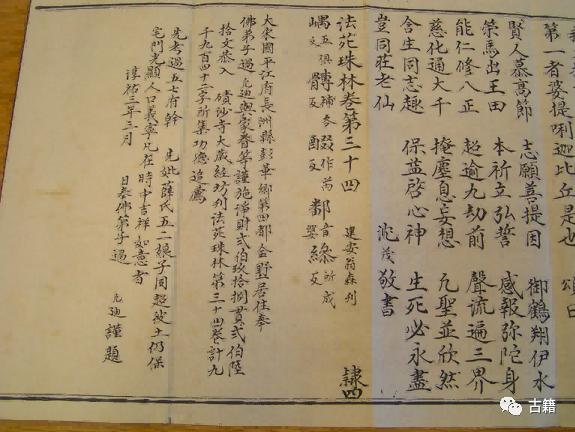 第一者婆提唎迦比丘是也 頌曰
賢人慕高節 志願菩提因 御鶴翔伊水
策馬出王田 本祈立弘誓 感報弥陀身
能仁修八正 超逾九劫前 聲流遍三界
慈化通大千 掩塵息妄想 九聖並欣然
含生同志趣 保益啓心神 生死必永盡
豈同莊老仙 敬書
法苑珠林卷第三十四 建安翁森刊 隸四
大宋國平江府長洲縣彭華鄉第四都金墅居住奉
佛弟子過九迪與家眷等謹施淨財貳伯玖拾捌貫貳伯陸
拾文恭入 磧砂寺大藏經坊刊法苑珠林第三十四卷計九
千九百四十二字所集功德追薦
先考過五七府幹 先妣薛氏五二娘子同超效土仍保
宅門光顯人口義寧凡在時中吉祥如意者
淳祐三年三月 日奉佛弟子過 九迪 謹題
古籍